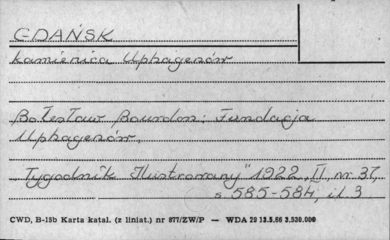 GDAŃSK
kamienica Uphagenów
Bolesław Bourdon: Fundacja
Uphagenów.
„Tygodnik Ilustrowany" 1922, II, nr 37,
s. 585-584, il. 3
CWD, B-15b Karta katal. (z liniat.) nr 877/ZW/P — WDA 20 13.5.66 2.530.000